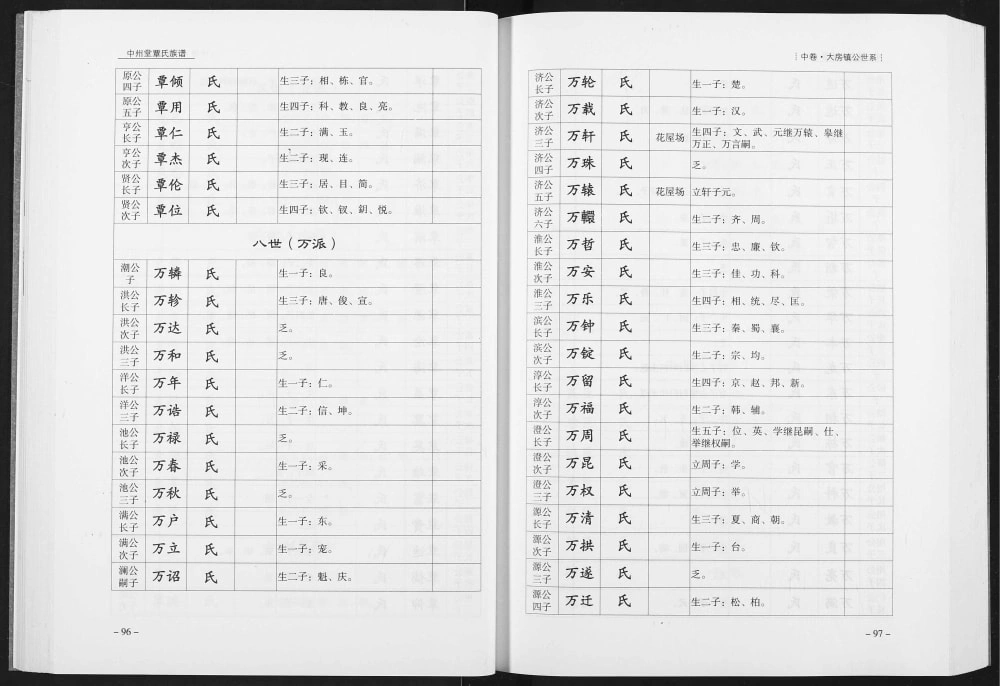 中州堂覃氏族谱
原公四子 覃倾 氏 生三子：相、栋、官。
原公五子 覃用 氏 生四子：科、教、良、亮。
亨公长子 覃仁 氏 生二子：满、玉。
亨公次子 覃杰 氏 生二子：现、连。
贤公长子 覃伦 氏 生三子：居、目、简。
贤公次子 覃位 氏 生四子：钦、钗、钥、悦。
八世（万派）
潮公子 万辚 氏 生一子：良。
洪公长子 万轸 氏 生三子：唐、俊、宣。
洪公次子 万达 氏 乏。
洪公三子 万和 氏 乏。
洋公长子 万年 氏 生一子：仁。
洋公三子 万诰 氏 生二子：信、坤。
池公长子 万禄 氏 乏。
池公次子 万春 氏 生一子：采。
池公三子 万秋 氏 乏。
满公长子 万户 氏 生一子：东。
满公次子 万立 氏 生一子：宠。
澜公嗣子 万诏 氏 生二子：魁、庆。
－96－
中卷·大房镇公世系
济公长子 万轮 氏 生一子：楚。
济公次子 万载 氏 生一子：汉。
济公三子 万轩 氏 花屋场 生四子：文、武、元继万辕、皋继
万正、万言嗣。
济公四子 万珠 氏 乏。
济公五子 万辕 氏 花屋场 立轩子元。
济公六子 万轘 氏 生二子：齐、周。
淮公长子 万哲 氏 生三子：忠、廉、钦。
淮公次子 万安 氏 生三子：佳、功、科。
淮公三子 万乐 氏 生四子：相、统、尽、匡。
滨公长子 万钟 氏 生三子：秦、蜀、襄。
滨公次子 万锭 氏 生二子：宗、均。
淳公长子 万留 氏 生四子：京、赵、邦、新。
淳公次子 万福 氏 生二子：韩、辅。
澄公长子 万周 氏 生五子：位、英、学继昆嗣、仕、
举继权嗣。
澄公次子 万昆 氏 立周子：学。
澄公三子 万权 氏 立周子：举。
源公长子 万清 氏 生三子：夏、商、朝。
源公次子 万拱 氏 生一子：台。
源公三子 万遂 氏 乏。
源公四子 万迁 氏 生二子：松、柏。
－97－